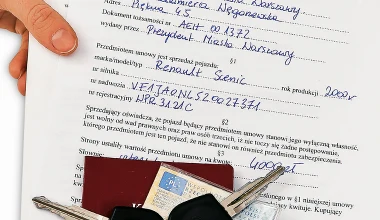 Warszawy
Węgonowska
Adres Piękna 45
Dokument tożsamości nr AEH 001372
wydany przez Prezydent Miasta Warszawy
§1
Przedmiotem umowy jest sprzedaż pojazdu:
marka/model/typ Renault Scenic
nr silnika rok produkcji 2000r
nr nadwozia VF1JA0NL520027371
nr rejestracyjny WPR 3121C
§2
Sprzedający oświadcza, że pojazd będący przedmiotem umowy stanowi jego wyłączną własność,
jest wolny od wad prawnych oraz praw osób trzecich, iż nie toczy się żadne postępowanie,
którego przedmiotem jest ten pojazd, że nie stanowi on również przedmiotu zabezpieczenia.
§3
Strony ustaliły wartość przedmiotu umowy na kwotę: 4000zł
Słownie:
w §1 niniejszej
kwituje. Kupujący
PL